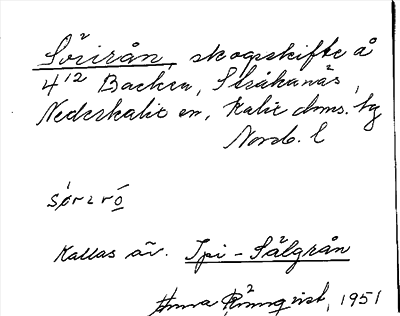 Sörirån, skogsskifte å
4¹² Backen, Stråkanäs,
Nederkalix sn, Kalix doms. hg
Norrb. l
Kallas äv. Ipi-Sälgrån
Anna Rönnqvist, 1951